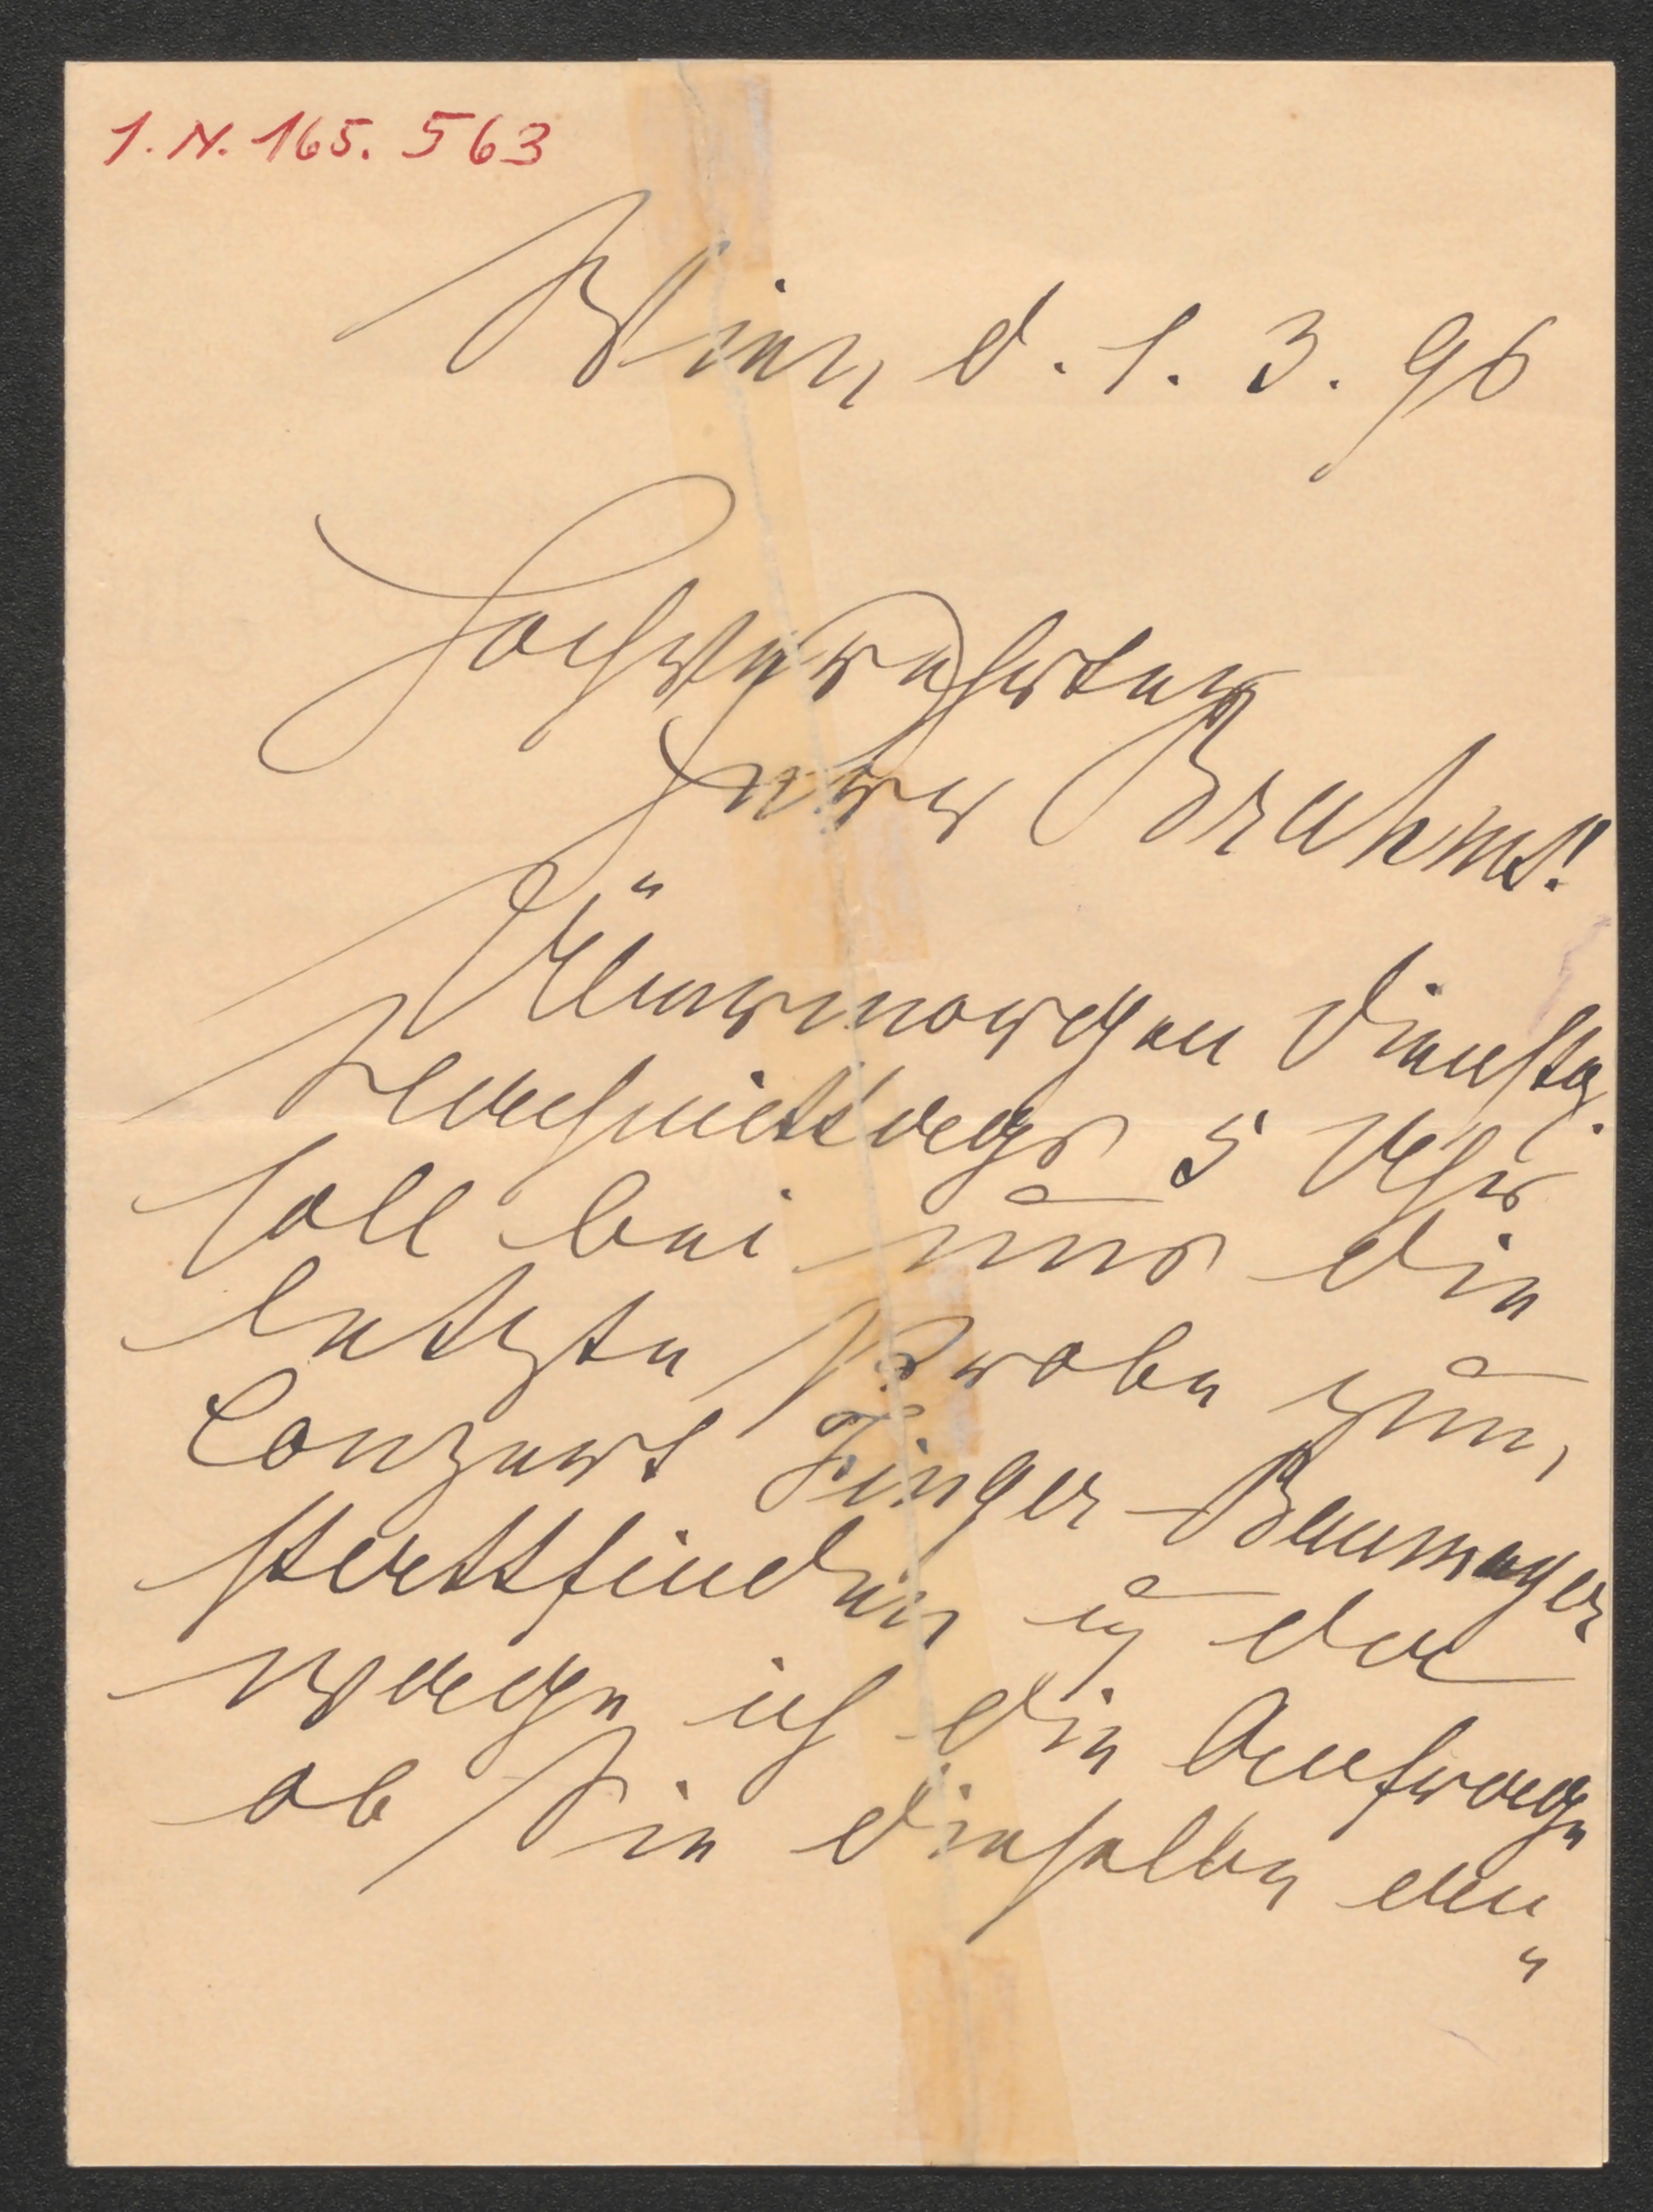 I.N. 165.563
Wien, d. 1. 3. 96
Hochverehrter
Herr Brahms!
Übermorgen Dienstag
Nachmittags 5 Uhr
soll bei uns die
letzte Probe zum
Conzert Finger-Baumayer
stattfinden u da
wage ich die Anfrage
ob Sie dieselbe an